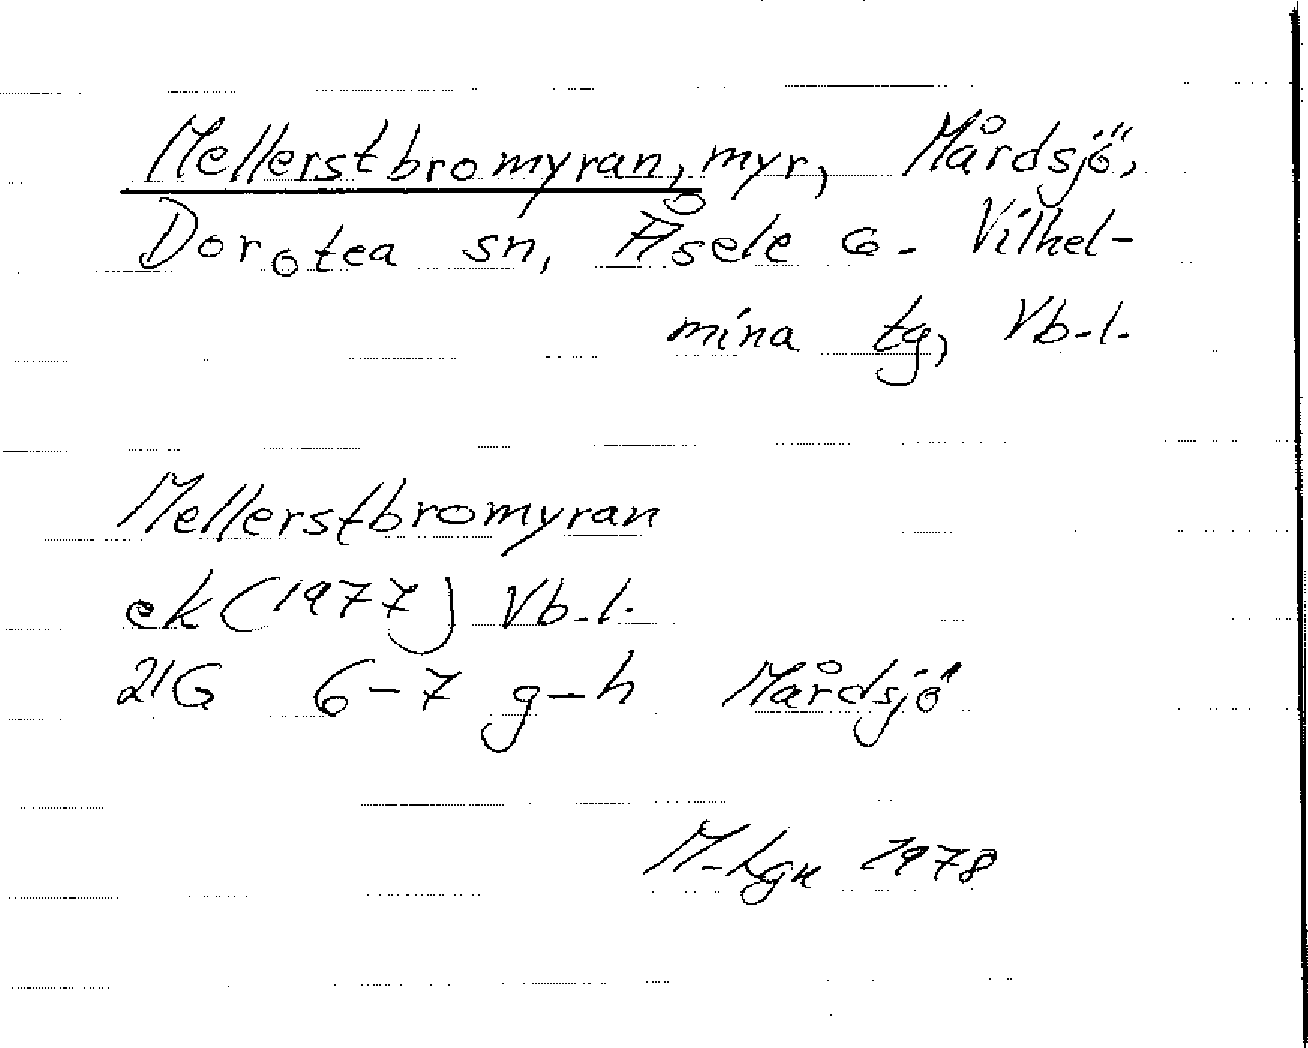 Mellerstbromyran, myr, Mårdsjö,
Dorotea sn, Åsele o. Vilhel-
mina tg, Vb.l.
Mellerstbromyran
ek (1977) Vb.l.
21G 6-7 g-h Mårdsjö
1978